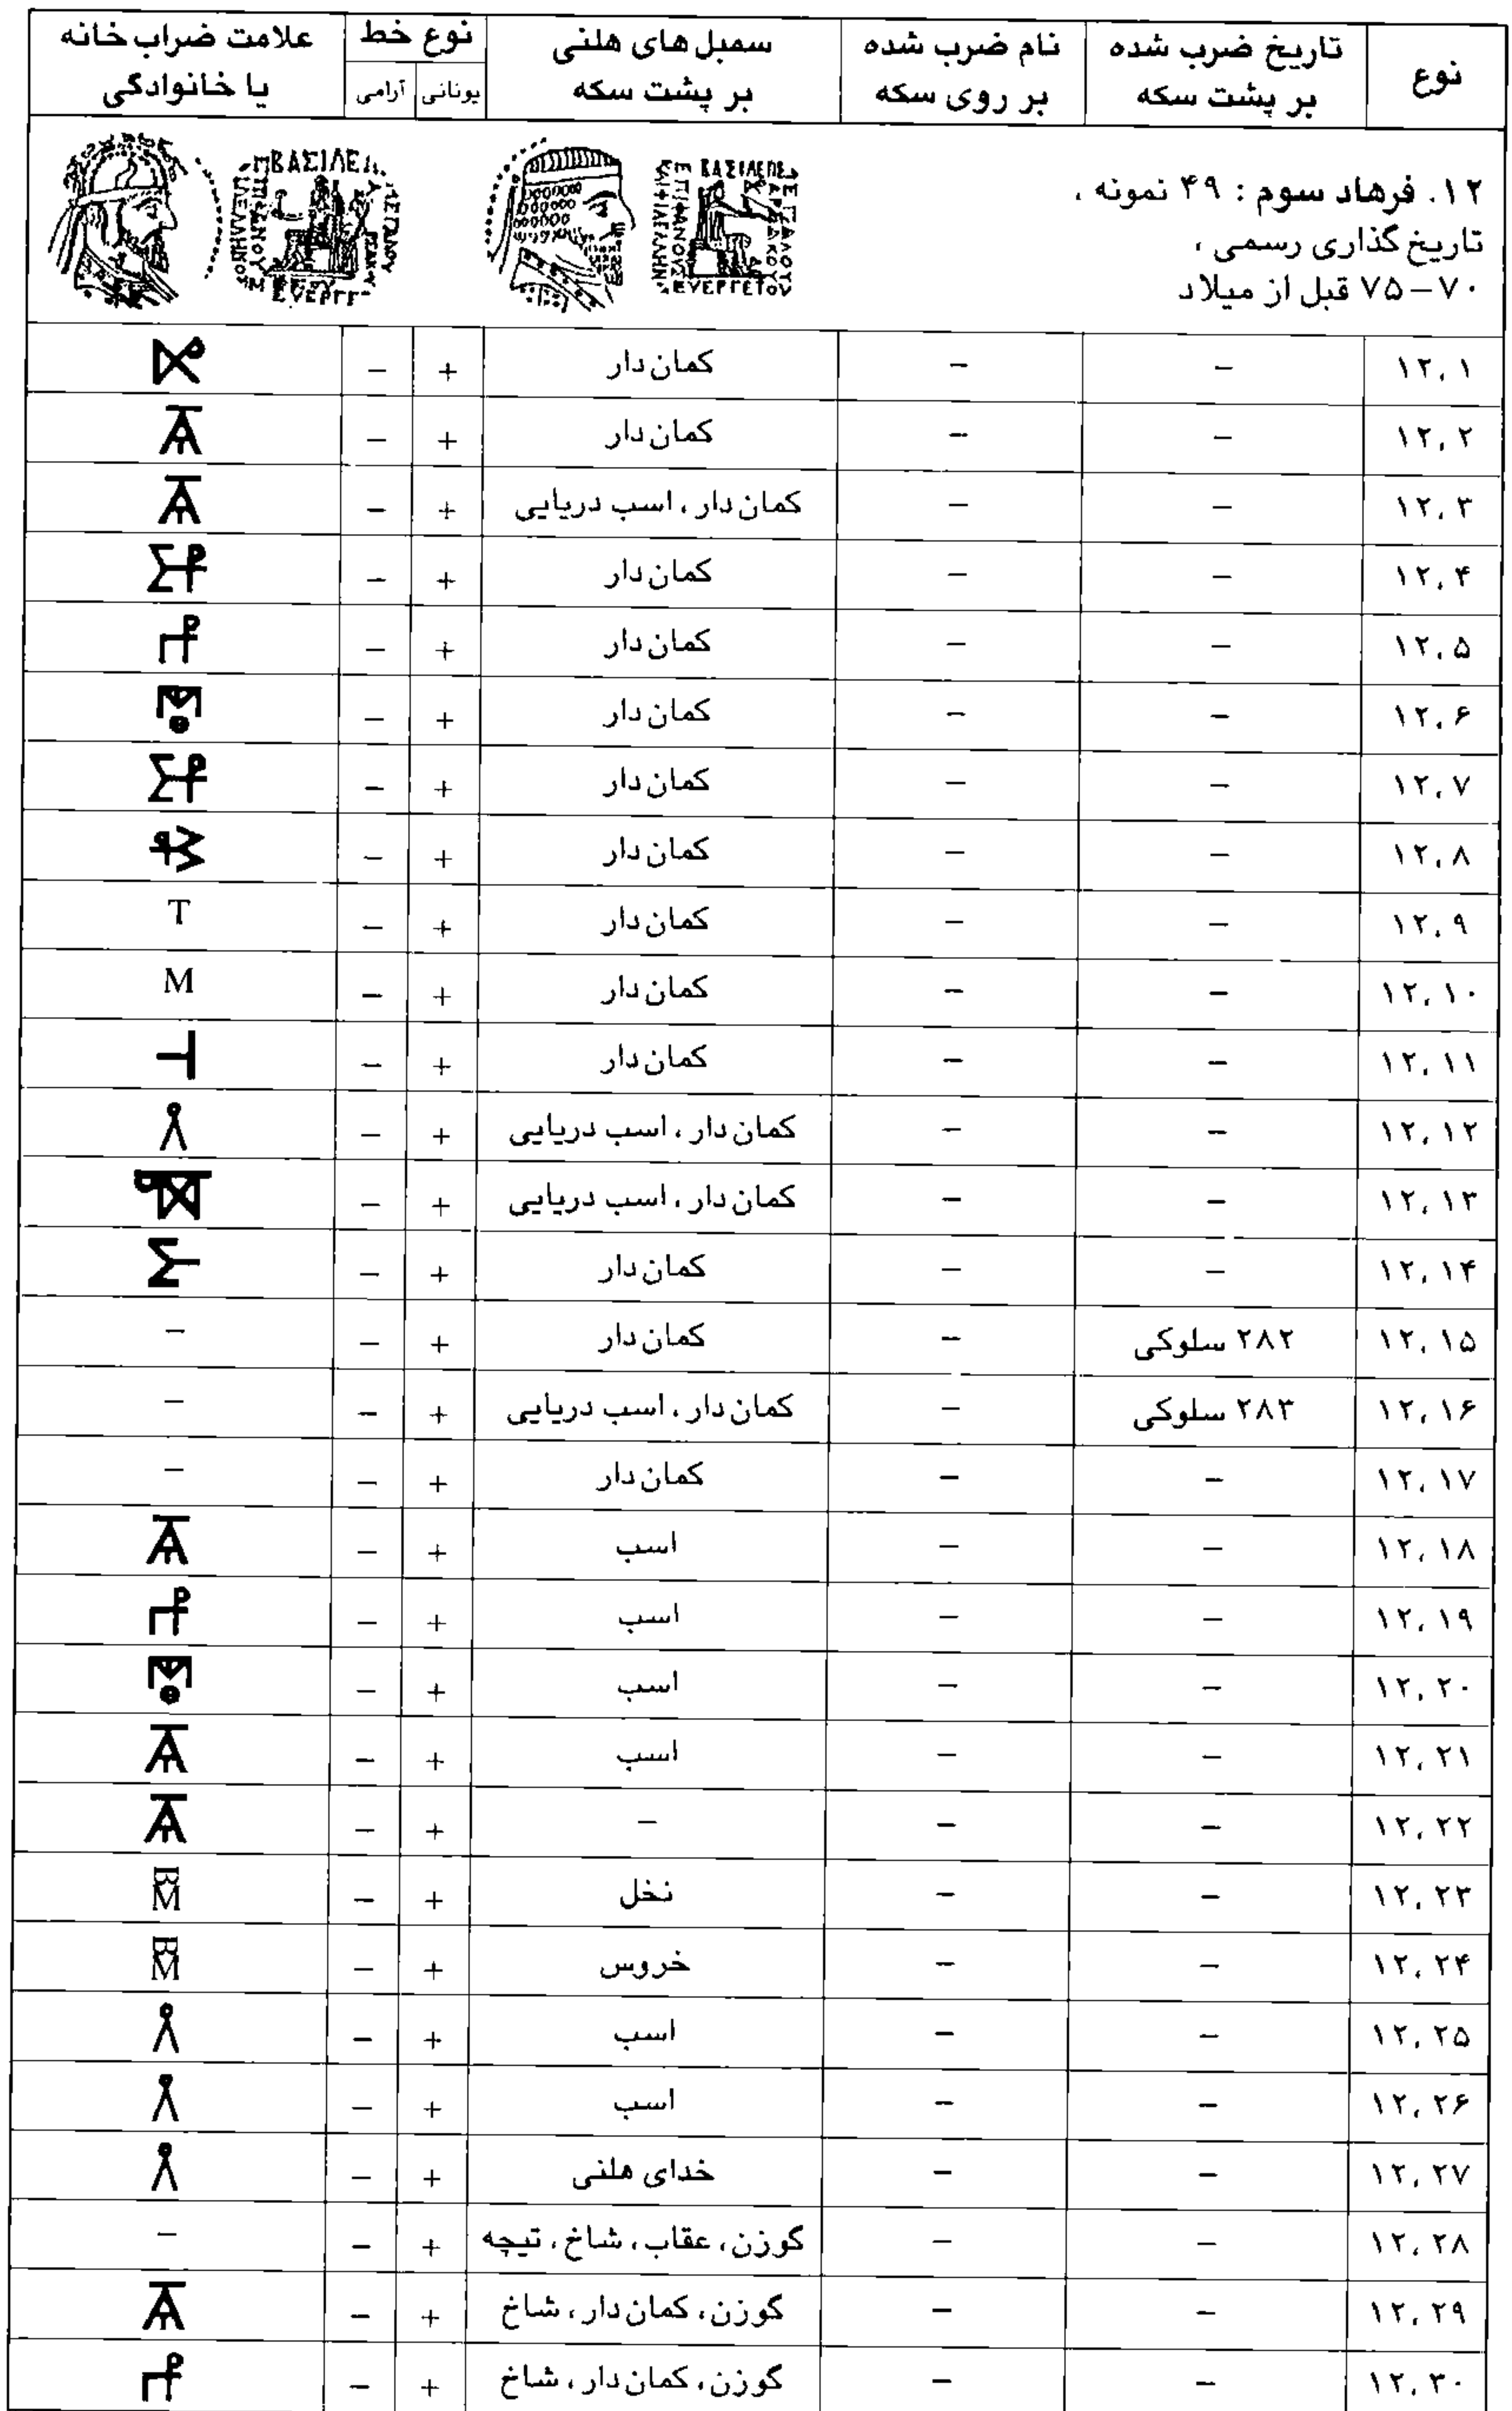 نوع | تاریخ ضرب شده بر پشت سکه | نام ضرب شده بر روی سکه | سمبل های هلنی بر پشت سکه | نوع خط یونانی آرامی | علامت ضراب خانه یا خانوادگی
۱۲. فرهاد سوم : ۴۹ نمونه ،
تاریخ گذاری رسمی ،
۷۰–۷۵ قبل از میلاد
۱۲،۱ | – | – | کمان دار | + | –
۱۲،۲ | – | – | کمان دار | + | –
۱۲،۳ | – | – | کمان دار ، اسب دریایی | + | –
۱۲،۴ | – | – | کمان دار | + | –
۱۲،۵ | – | – | کمان دار | + | –
۱۲،۶ | – | – | کمان دار | + | –
۱۲،۷ | – | – | کمان دار | + | –
۱۲،۸ | – | – | کمان دار | + | –
۱۲،۹ | – | – | کمان دار | + | – | T
۱۲،۱۰ | – | – | کمان دار | + | – | M
۱۲،۱۱ | – | – | کمان دار | + | –
۱۲،۱۲ | – | – | کمان دار ، اسب دریایی | + | –
۱۲،۱۳ | – | – | کمان دار ، اسب دریایی | + | –
۱۲،۱۴ | – | – | کمان دار | + | –
۱۲،۱۵ | ۲۸۲ سلوکی | – | کمان دار | + | – | –
۱۲،۱۶ | ۲۸۳ سلوکی | – | کمان دار ، اسب دریایی | + | – | –
۱۲،۱۷ | – | – | کمان دار | + | – | –
۱۲،۱۸ | – | – | اسب | + | –
۱۲،۱۹ | – | – | اسب | + | –
۱۲،۲۰ | – | – | اسب | + | –
۱۲،۲۱ | – | – | اسب | + | –
۱۲،۲۲ | – | – | – | + | –
۱۲،۲۳ | – | – | نخل | + | –
۱۲،۲۴ | – | – | خروس | + | –
۱۲،۲۵ | – | – | اسب | + | –
۱۲،۲۶ | – | – | اسب | + | –
۱۲،۲۷ | – | – | خدای هلنی | + | –
۱۲،۲۸ | – | – | گوزن، عقاب، شاخ، تیچه | + | – | –
۱۲،۲۹ | – | – | گوزن، کمان دار ، شاخ | + | –
۱۲،۳۰ | – | – | گوزن، کمان دار ، شاخ | + | –